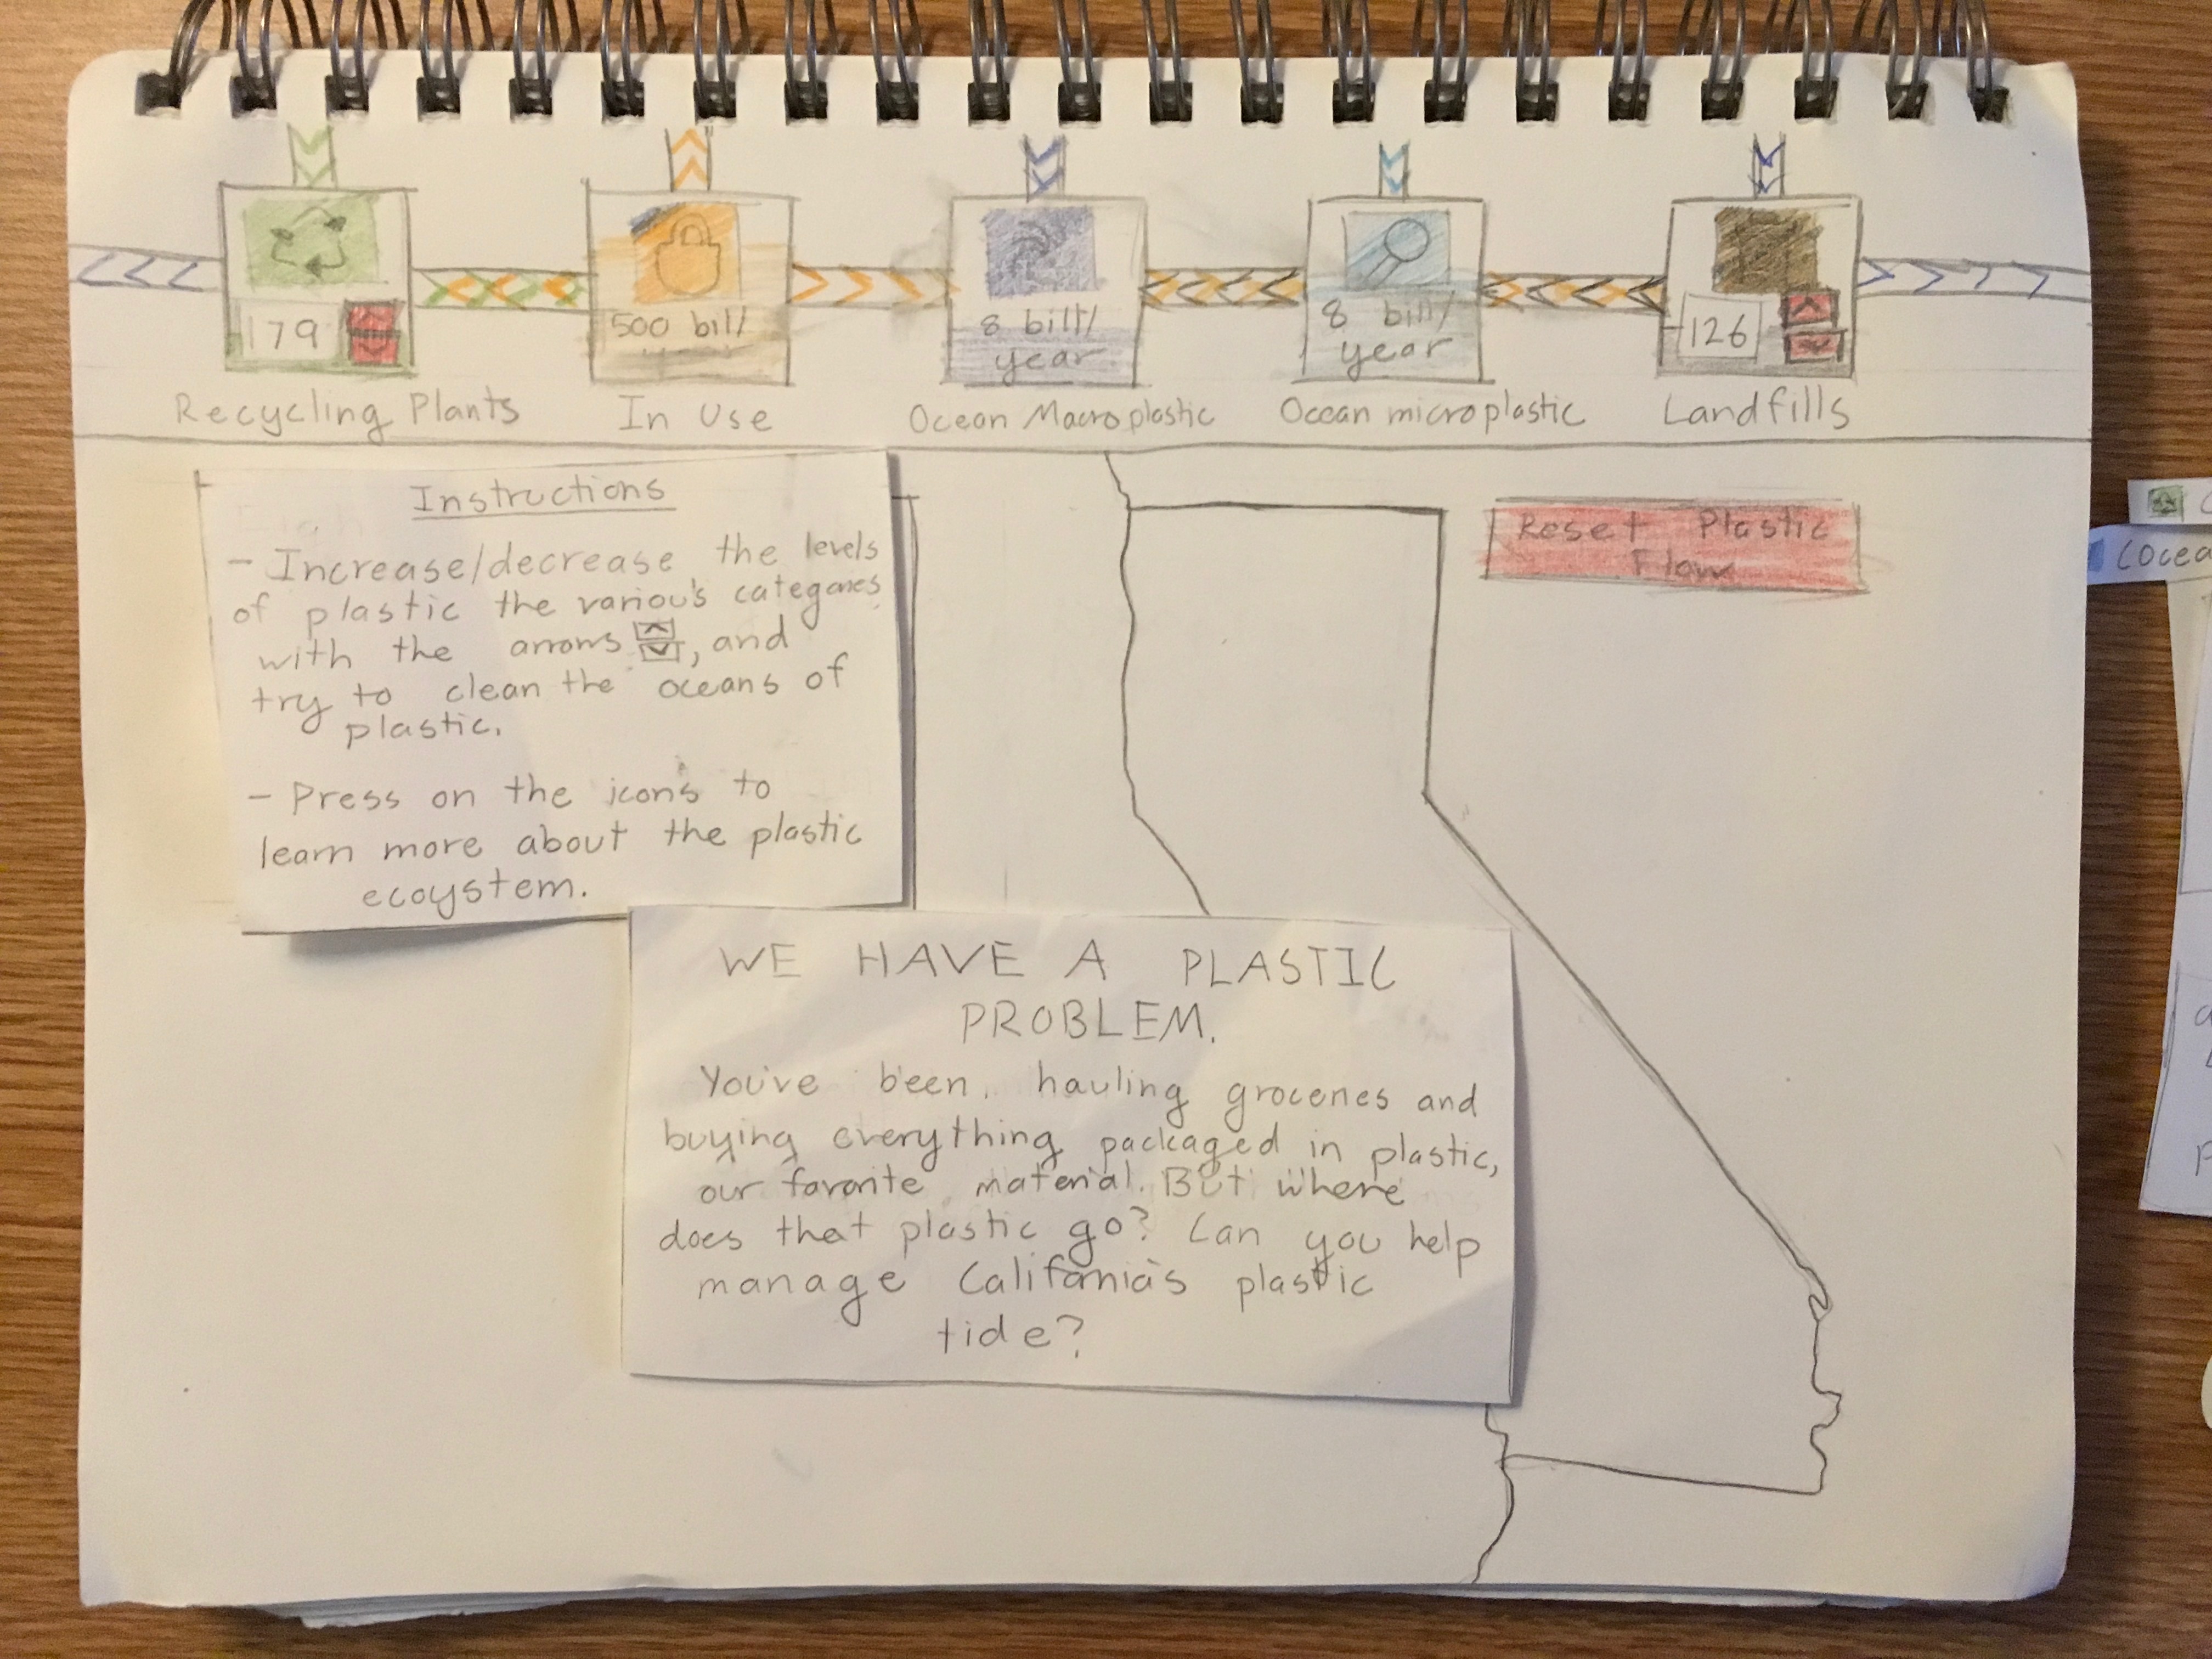 179
500 bill/
8 bill/
year
8 bill/
year
126
Recycling Plants
In Use
Ocean Macroplastic
Ocean microplastic
Landfills
Instructions
- Increase/decrease the levels
of plastic the various categories
with the arrows, and
try to clean the oceans of
plastic.
- Press on the icons to
learn more about the plastic
ecoystem.
Reset Plastic
Flow
WE HAVE A PLASTIC
PROBLEM.
You've been hauling groceries and
buying everything packaged in plastic,
our favorite material. But where
does that plastic go? Can you help
manage California's plastic
tide?
(Ocea